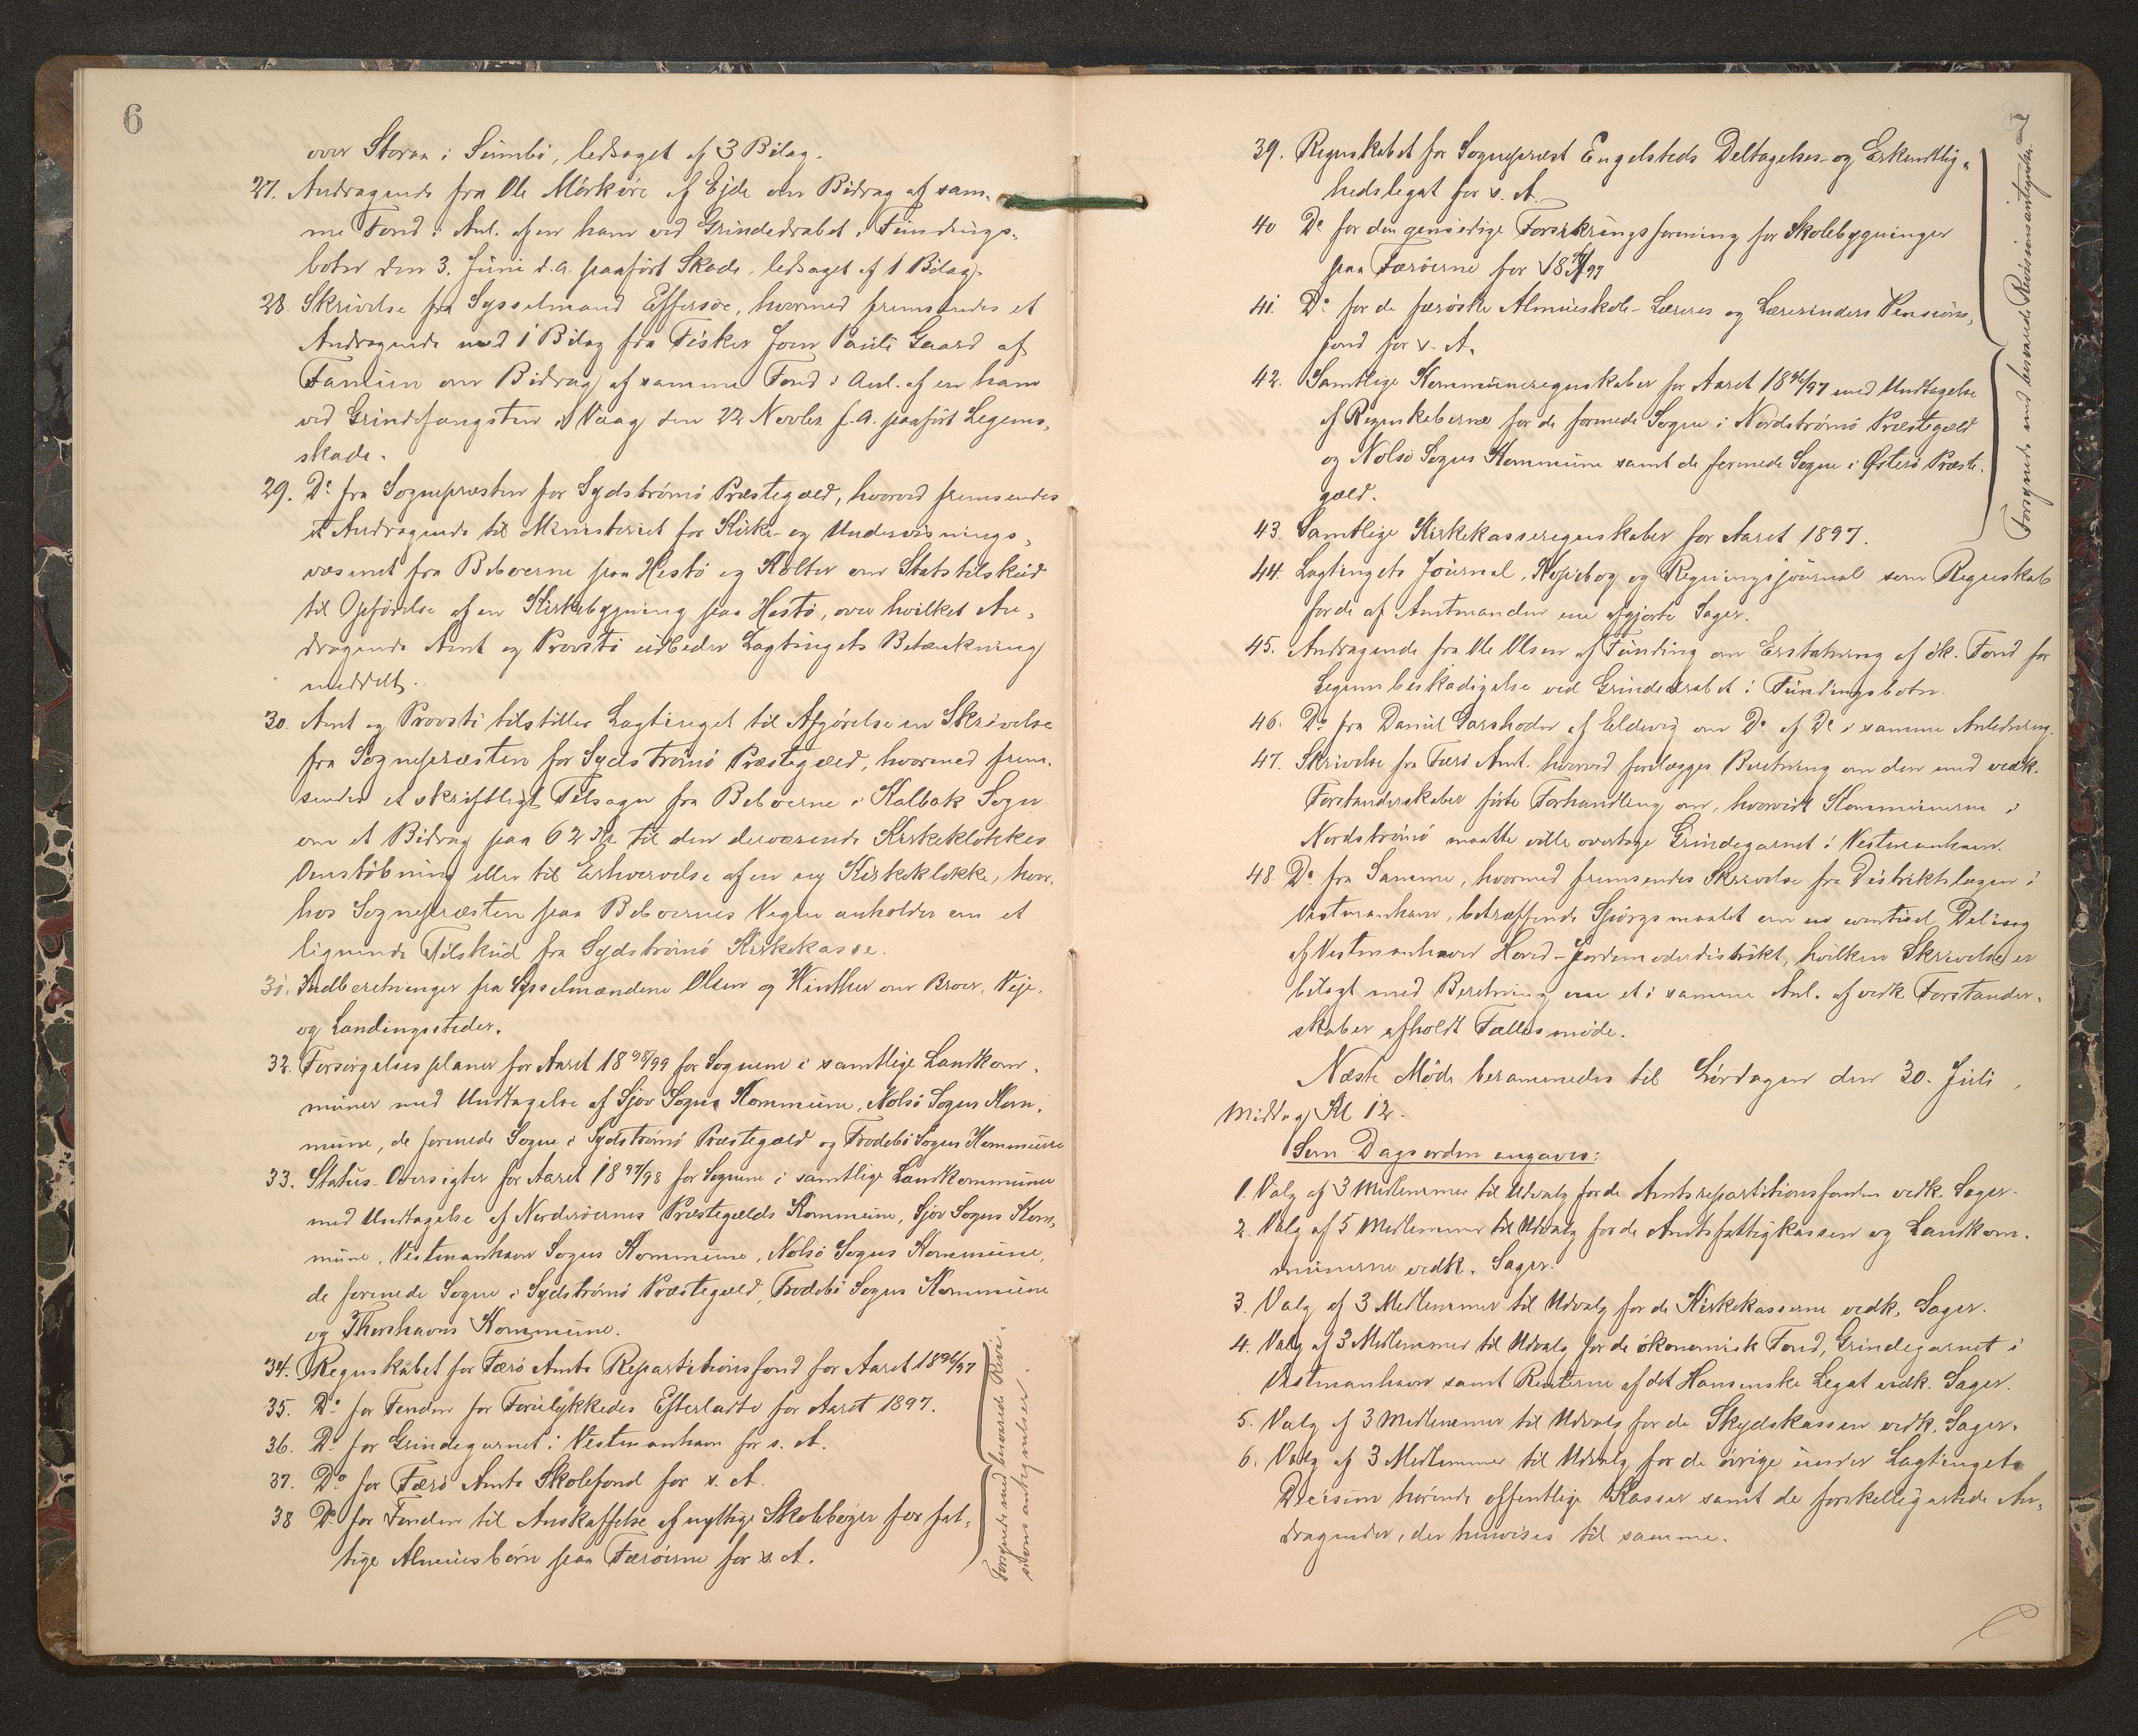 6
over Storaa i Sumbö, ledsaget af 3 Bilag.
27. Andragende fra Ole Mörköre af Ejde om Bidrag af sam-
me Fond i Anl. af en ham ved Grindedrabet i Fundings-
botn den 3. Juni d.a. paaført Skade, ledsaget af 1 Bilag.
28. Skrivelse fra Sysselmand Effersöe, hvormed fremsendes et
Andragende med 1 Bilag fra Fisker Joen Pauli Gaard af
Famien om Bidrag af samme Fond i Anl. af en ham
ved Grindefangsten i Vaag den 22 Novbr f.A. paaført Legems-
skade.
29. Do fra Sognepræsten for Sydströmö Præstegæld, hvorved fremsendes
et Andragende til Ministeriet for Kirke- og Undervisnings-
væsenet fra Beboerne paa Hestö og Kolter om Statstilskud
til Opförelse af en Kirkebygning paa Hestö, over hvilket An-
dragende Amt og Provsti udbeder Lagtingets Betænkning
meddelt.
30. Amt og Provsti tilstiller Lagtinget til Afgörelse en Skrivelse
fra Sognepræsten for Sydströmö Præstegæld, hvormed frem-
sendes et skriftligt Tilsagn fra Beboerne i Kalbak Sogn
om et Bidrag paa 62 Kr. til den derværende Kirkeklokkes
Omstöbning eller til Erhvervelse af en ny Kirkeklokke, hvor-
hos Sognepræsten paa Beboernes Vegne anholder om et
lignende Tilskud fra Sydströmö Kirkekasse.
31. Indberetninger fra Sysselmændene Olsen og Winther om Broer, Veje,
og Landingssteder.
32. Forsörgelsesplaner for Aaret 1898/99 for Sognene i samtlige Landkom-
muner med Undtagelse af Sjov Sogns Kommune, Nolsö Sogns Kom-
mune, de forenede Sogne i Sydströmö Præstegæld og Frodebö Sogns Kommune
33. Status-Oversigter for Aaret 1897/98 for Sognene i samtlige Landkommuner
med Undtagelse af Norderöernes Præstegælds Kommune, Sjov Sogns Kom-
mune, Vestmanhavn Sogns Kommune, Nolsö Sogns Kommune,
de forenede Sogne i Sydströmö Præstegæld, Frodebö Sogns Kommune
og Thorshavns Kommune.
34. Regnskabet for Færö Amts Repartitionsfond for Aaret 1896/97
35. Do for Fonden for Forulykkedes Efterladte for Aaret 1897.
36. Do for Grindegarnet i Vestmanhavn for s. A.
37. Do for Færö Amts Skolefond for s. A.
38 Do for Fonden til Anskaffelse af nyttige Skoleböger for fat-
tige Almuesbörn paa Færöerne for s. A.
Forsynede med besvarede Revi-
sionsantegnelser.
7
39. Regnskabet for Sognepræst Engelsteds Deltagelses- og Erkendtlig-
hedslegat for s. A.
40 Do for den gensidige Forsikringsforening for Skolebygninger
paa Færöerne for 1896/97
41. Do for de færöske Almueskole-Læreres og Lærerinders Pensions-
fond for s. A.
42. Samtlige Kommuneregnskaber for Aaret 1896/97 med Undtagelse
af Regnskaberne for de forenede Sogne i Nordströmö Præstegæld
og Nolsö Sogns Kommune samt de forenede Sogne i Østerö Præste-
gæld.
43. Samtlige Kirkekasseregnskaber for Aaret 1897.
Forsynede med besvarede Revisionsantegnelser.
44. Lagtingets Journal, Kopiebog og Regningsjournal som Regnskab
for de af Amtmanden ene afgjorte Sager.
45. Andragende fra Ole Olsen af Funding om Erstatning af ök. Fond for
Legemsbeskadigelse ved Grindedrabet i Fundingsbotn.
46. Do fra Daniel Garshodn af Eldevig om Do af Do i samme Anledning.
47. Skrivelse fra Færö Amt, hvorved forelægges Beretning om den med vedk.
Forstanderskaber förte Forhandling om, hvorvidt Kommunerne i
Nordströmö maatte ville overtage Grindegarnet i Vestmanhavn.
48 Do fra Samme, hvormed fremsendes Skrivelse fra Distriktslægen i
Vestmanhavn, betræffende Spörgsmaalet om en eventuel Deling
af Vestmanhavn Hoved-Jordemoderdistrikt, hvilken Skrivelse er
bilagt med Beretning om et i samme Anl. af vedk. Forstander-
skaber afholdt Fællesmöde.
Næste Möde berammedes til Lördagen den 30. Juli,
Middag Kl 12.
Som Dagsorden angaves:
1. Valg af 3 Medlemmer til Udvalg for de Amtsrepartitionsfonden vedk. Sager.
2. Valg af 5 Medlemmer til Udvalg for de Amtsfattigkassen og Landkom-
munerne vedk. Sager.
3. Valg af 3 Medlemmer til Udvalg for de Kirkekasserne vedk. Sager.
4. Valg af 3 Medlemmer til Udvalg for de ökonomisk Fond, Grindegarnet i
Vestmanhavn samt Renterne af det Hansenske Legat vedk. Sager.
5. Valg af 3 Medlemmer til Udvalg for de Skydskassen vedk. Sager.
6. Valg af 3 Medlemmer til Udvalg for de övrige under Lagtingets
Decision hörende offentlige Kasser samt de forskelligartede An-
dragender, der henvises til samme.